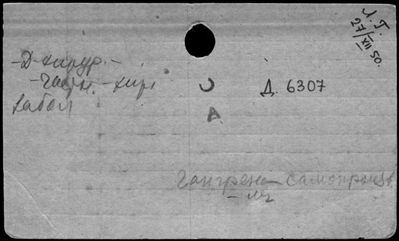 Л. Г.
27/XII 50.
-Д-хирур.-
-Гасн.-хир.
забол
Д. 6307
А
Гангрена самопроизв.